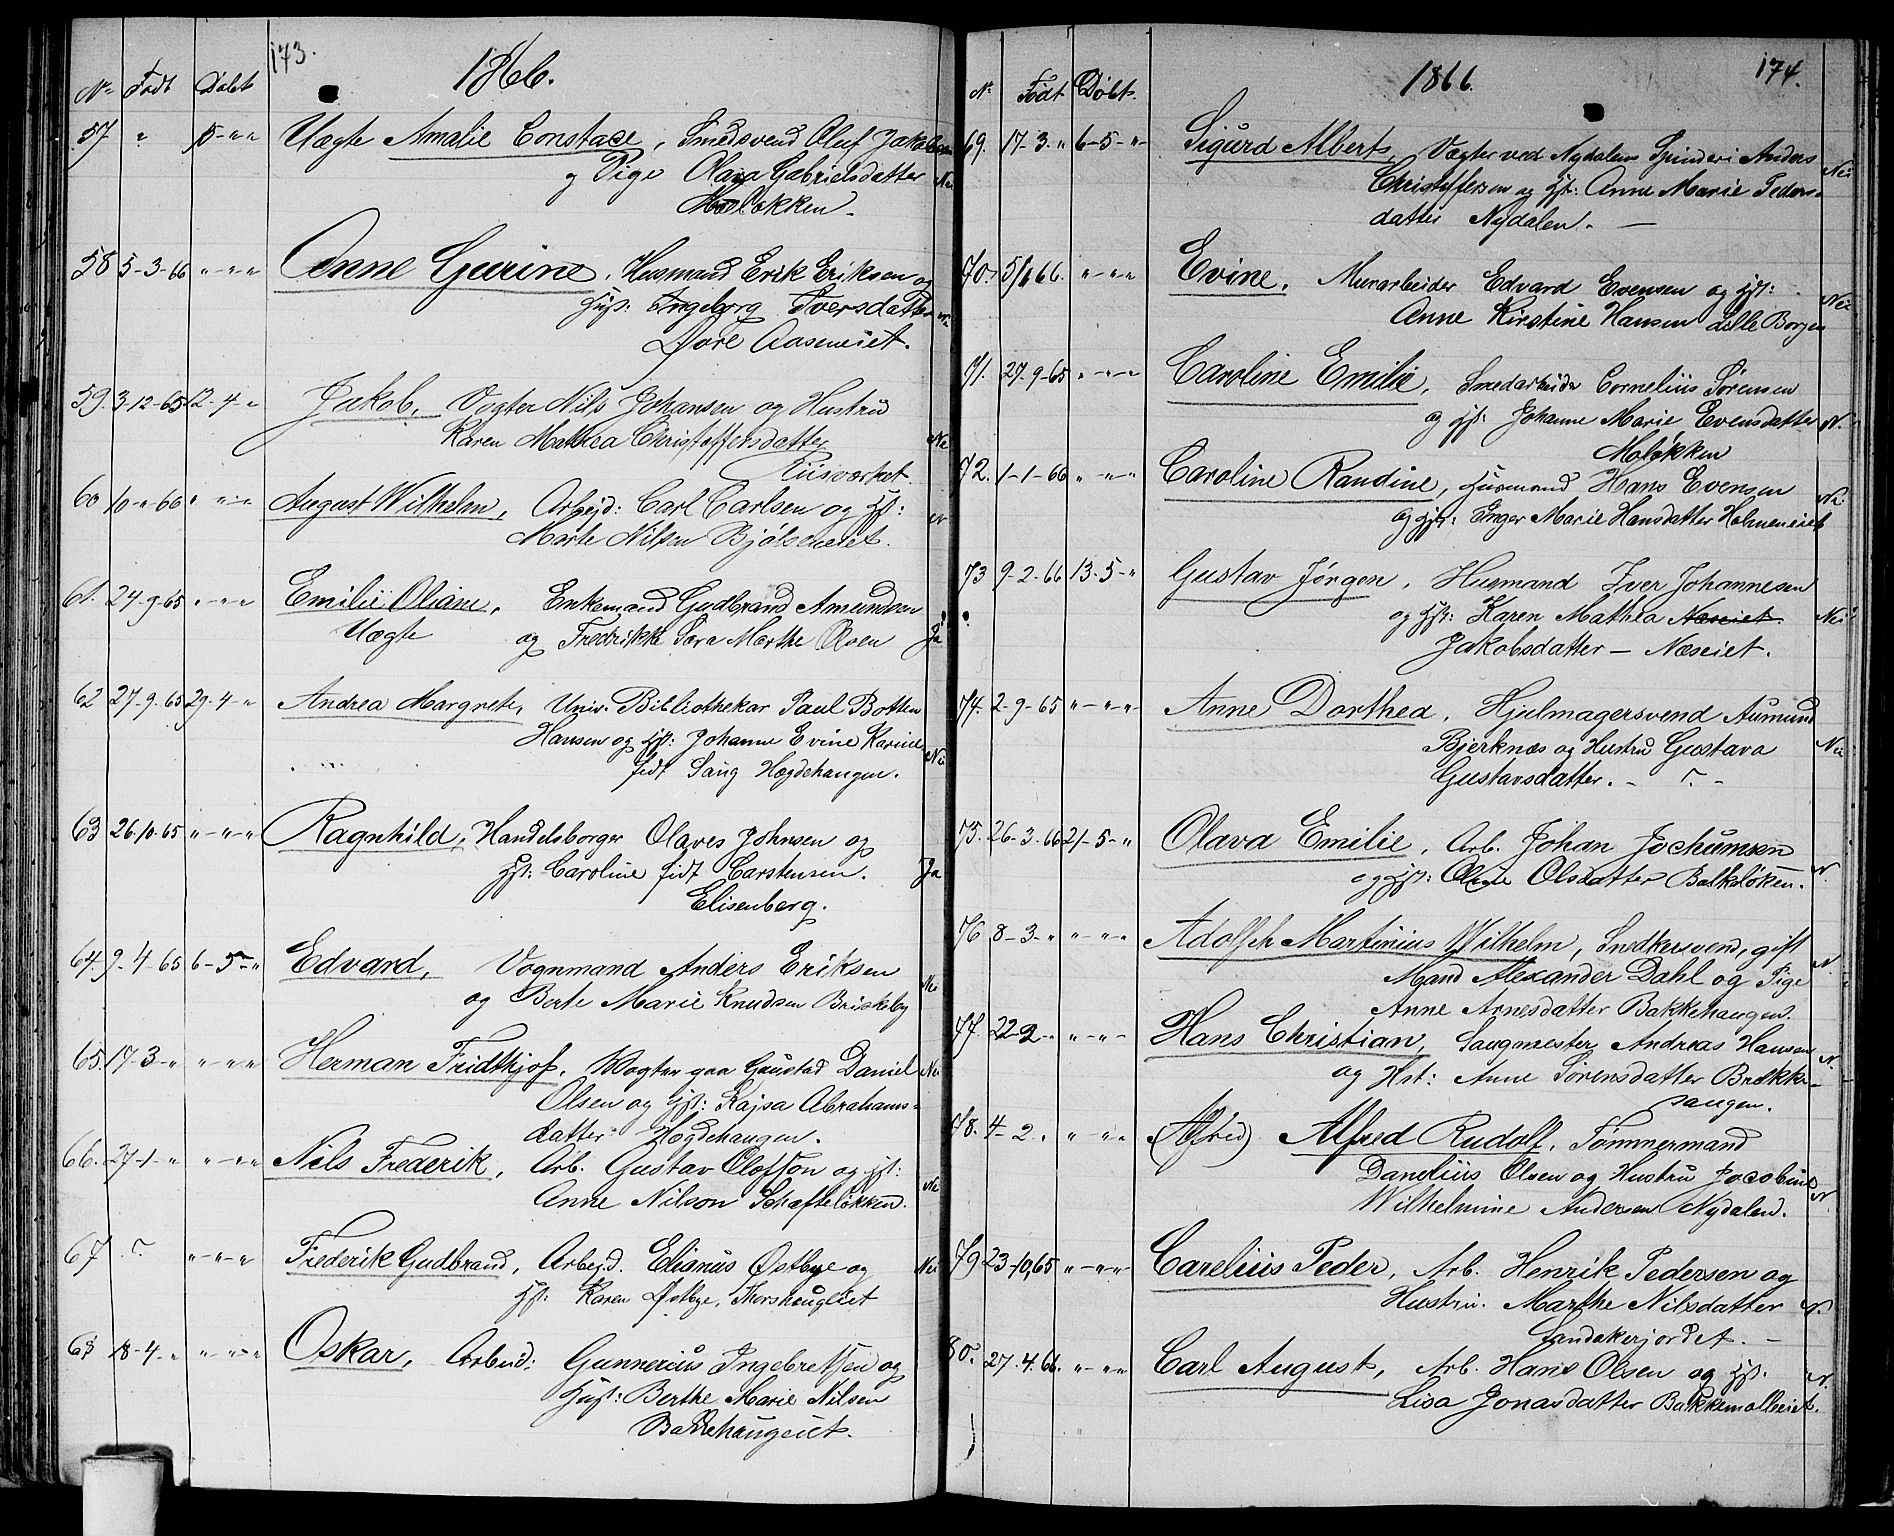 173.
1866.
No Født Døbt
57 " 5-"" Uægte Amalie Constace, Smedsvend Oluf Jakobsen
og Pige Olava Gabrielsdatter Nei
Moeløkken.
58 5-3-66 "-"-" Anne Gurine, Husmand Erik Eriksen og
Hust: Ingeborg Iversdatter
Øvre Aaseneiet.
59. 3-12-65 2-4-" Jakob, Vogter Nils Johansen og Hustru
Karen Mathea Christoffersdatter Nei
Riisværket.
60 10-"-66 "-"-" August Wilhelm, Arbejd: Carl Carlsen og Hst:
Marte Nilsen Bjølseneiet.
61. 24-9-65 "-"-" Emilie Oliane, Enkemand Gudbrand Amundsen
Uægte og Fredrikke Sara Marthe Olsen Ja
62 27-9-65 29-4-" Andrea Margrete, Univ. Bibliothekar Paul Botten
Hansen og Hst: Johanne Evine Karine
født Haug Hægdehaugen. Nei
63 26-10-65 "-"-" Ragnhild, Handelsborger Olaves Johnsen og
Hst: Caroline født Carstensen. Ja
Elisenberg.
64. 9-4-65 6-5-" Edvard, Vognmand Anders Eriksen
og Berte Marie Knudsen Briskeby Nei
65. 17-3-" "-"-" Herman Fridthjof, Vogter paa Gaustad Daniel Nei
Olsen og Hst: Kajsa Abrahams-
datter Hægdehaugen.
66. 27-1-" "-"-" Nils Frederik, Arb. Gustav Olofson og Hst:
Anne Nilson Schafteløkken. Nei
67 ? "-"-" Frederik Gudbrand, Arbejd. Elianus Østbye og Nei
Hst: Karen Østbye, Thorshaugeiet
68 18-4-" "-"-" Oskar, Arbeid: Gunnerius Ingebretsen og
Hust: Berthe Marie Nilsen
Bakkehaugeiet.
1866.
174.
No Født Døbt.
69. 17-3-" 6-5-" Sigurd Albert, Vægter ved Nydalens Spinderi Anders
Christoffersen og Hst: Anne Marie Peders- Nei
datter Nydalen. —
70. 5/1 66. "-"-" Evine, Murarbeider Edvard Evensen og Hst:
Anne Kirstine Hansen Lille Borgen Nei
71. 27-9-65 "-"-" Caroline Emilie, Smedarbeider Cornelius Sørensen
og Hst: Johanne Marie Evensdatter N.
Moløkken
72. 1-1-66 "-"-" Caroline Randine, Husmand Hans Evensen
og Hst: Inger Marie Hansdatter Holmeneiet Nei
73 9-2-66 13-5-" Gustav Jørgen, Husmand Iver Johannesen
og Hst: Karen Mathea Næseiet Nei
Jakobsdatter — Næseiet.
74. 2-9-65 "-"-" Anne Dorthea, Hjulmagersvend Aumund
Bjerknæs og Hustru Gustava Nei
Gustavsdatter. - ? -
75. 26-3-66 21-5-" Olava Emilie, Arb. Johan Jochumsen
og Hst: Olsdatter Balkeløken. N.
76 8-3-" "-"-" Adolph Martinius Wilhelm, Snedkersvend, gift
Mand Alexander Dahl og Pige N
Anne Arnesdatter Bakkehaugen.
77. 22-2-" "-"-" Hans Christian, Saugmester Andreas Hansen
og Hst: Anne Sørensdatter Brække- N.
saugen.
78. 4-2-" "-"-" (Alfred) Alfred Rudolf, Tømmermand
Danelius Olsen og Hustru Jacobine
Wilhelmine Andersen Nydalen. N.
79 23-10,65 "-"-" Carelius Peder, Arb. Henrik Pedersen og
Hustru. Marthe Nilsdatter N.
Sandakerjordet. —
80. 27.4.66. "-"-" Carl August, Arb. Hans Olsen og Hst.
Lisa Jonasdatter Bakkemølleeiet. N.